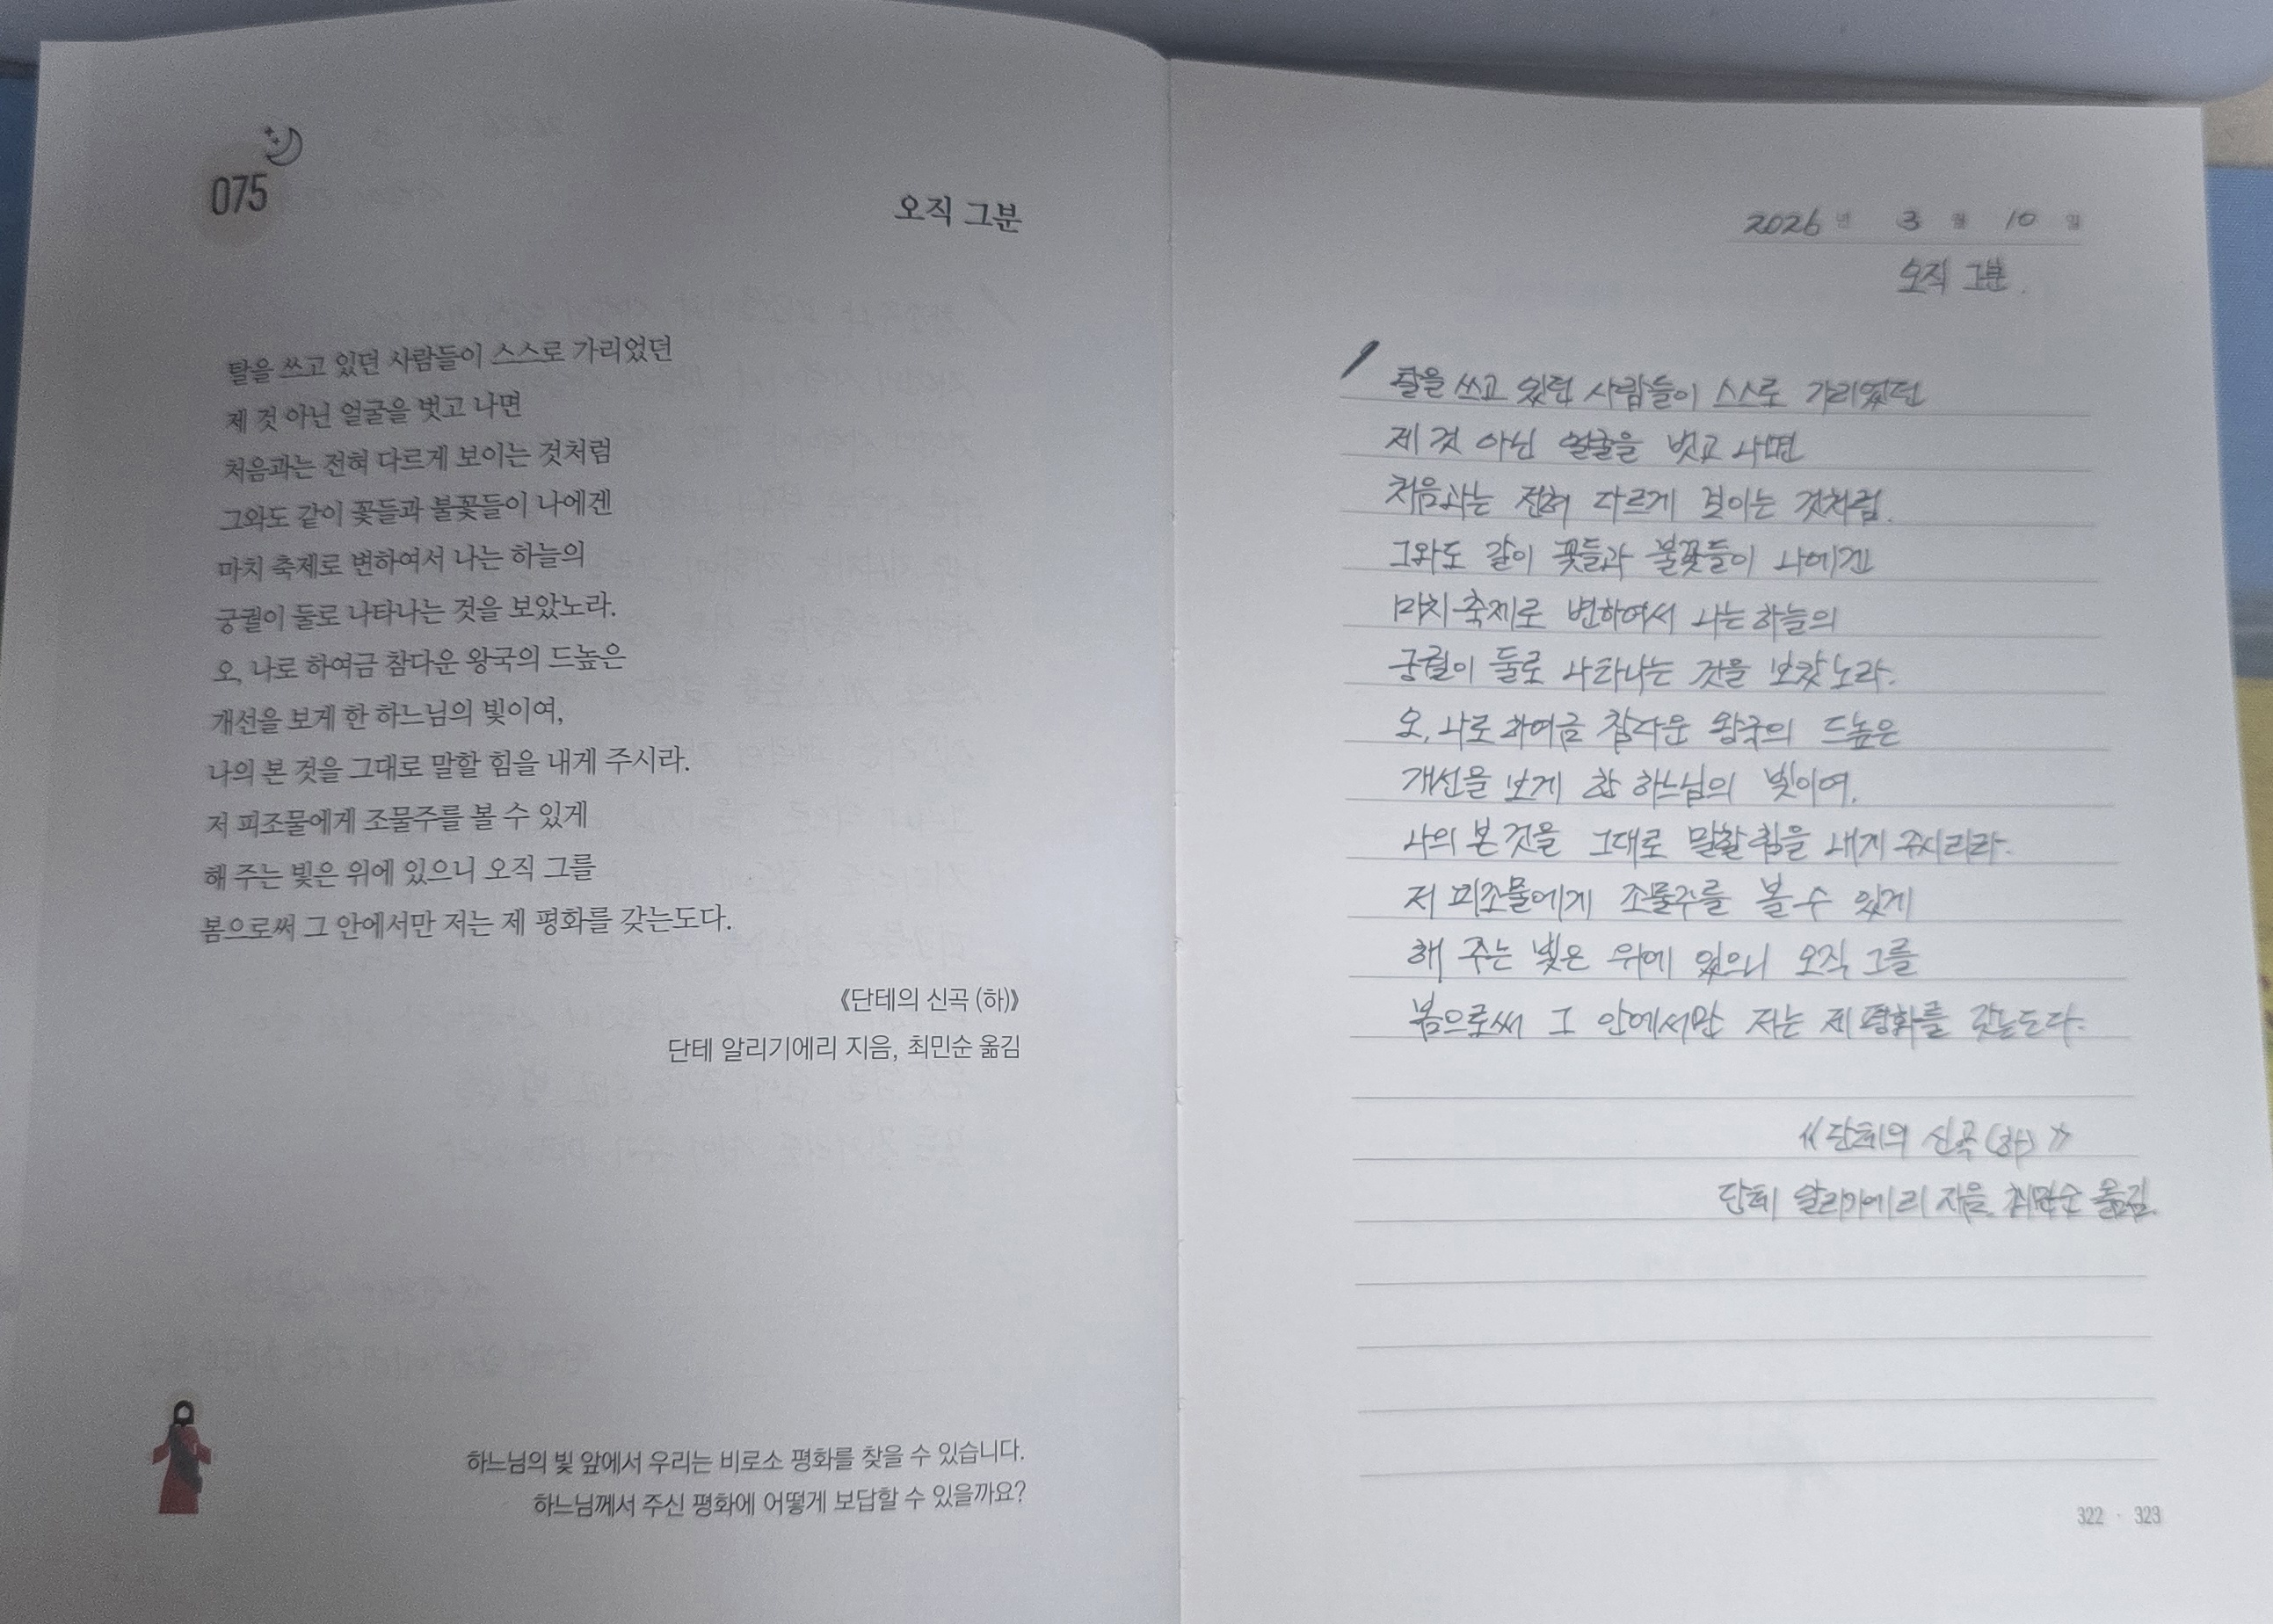 075
오직 그분
탈을 쓰고 있던 사람들이 스스로 가리었던
제 것 아닌 얼굴을 벗고 나면
처음과는 전혀 다르게 보이는 것처럼
그와도 같이 꽃들과 불꽃들이 나에겐
마치 축제로 변하여서 나는 하늘의
궁궐이 둘로 나타나는 것을 보았노라.
오, 나로 하여금 참다운 왕국의 드높은
개선을 보게 한 하느님의 빛이여,
나의 본 것을 그대로 말할 힘을 내게 주시라.
저 피조물에게 조물주를 볼 수 있게
해 주는 빛은 위에 있으니 오직 그를
봄으로써 그 안에서만 저는 제 평화를 갖는도다.
《단테의 신곡 (하)》
단테 알리기에리 지음, 최민순 옮김
하느님의 빛 앞에서 우리는 비로소 평화를 찾을 수 있습니다.
하느님께서 주신 평화에 어떻게 보답할 수 있을까요?
2026년 3월 10일
오직 그분.
탈을 쓰고 있던 사람들이 스스로 가리었던
제 것 아닌 얼굴을 벗고 나면
처음과는 전혀 다르게 보이는 것처럼.
그와도 같이 꽃들과 불꽃들이 나에겐
마치 축제로 변하여서 나는 하늘의
궁궐이 둘로 나타나는 것을 보았노라.
오, 나로 하여금 참다운 왕국의 드높은
개선을 보게 한 하느님의 빛이여.
나의 본 것을 그대로 말할 힘을 내게 주시리라.
저 피조물에게 조물주를 볼 수 있게
해 주는 빛은 위에 있으니 오직 그를
봄으로써 그 안에서만 저는 제 평화를 갖는도다.
《단테의 신곡 (하)》
단테 알리기에리 지음, 최민순 옮김.
322 · 323